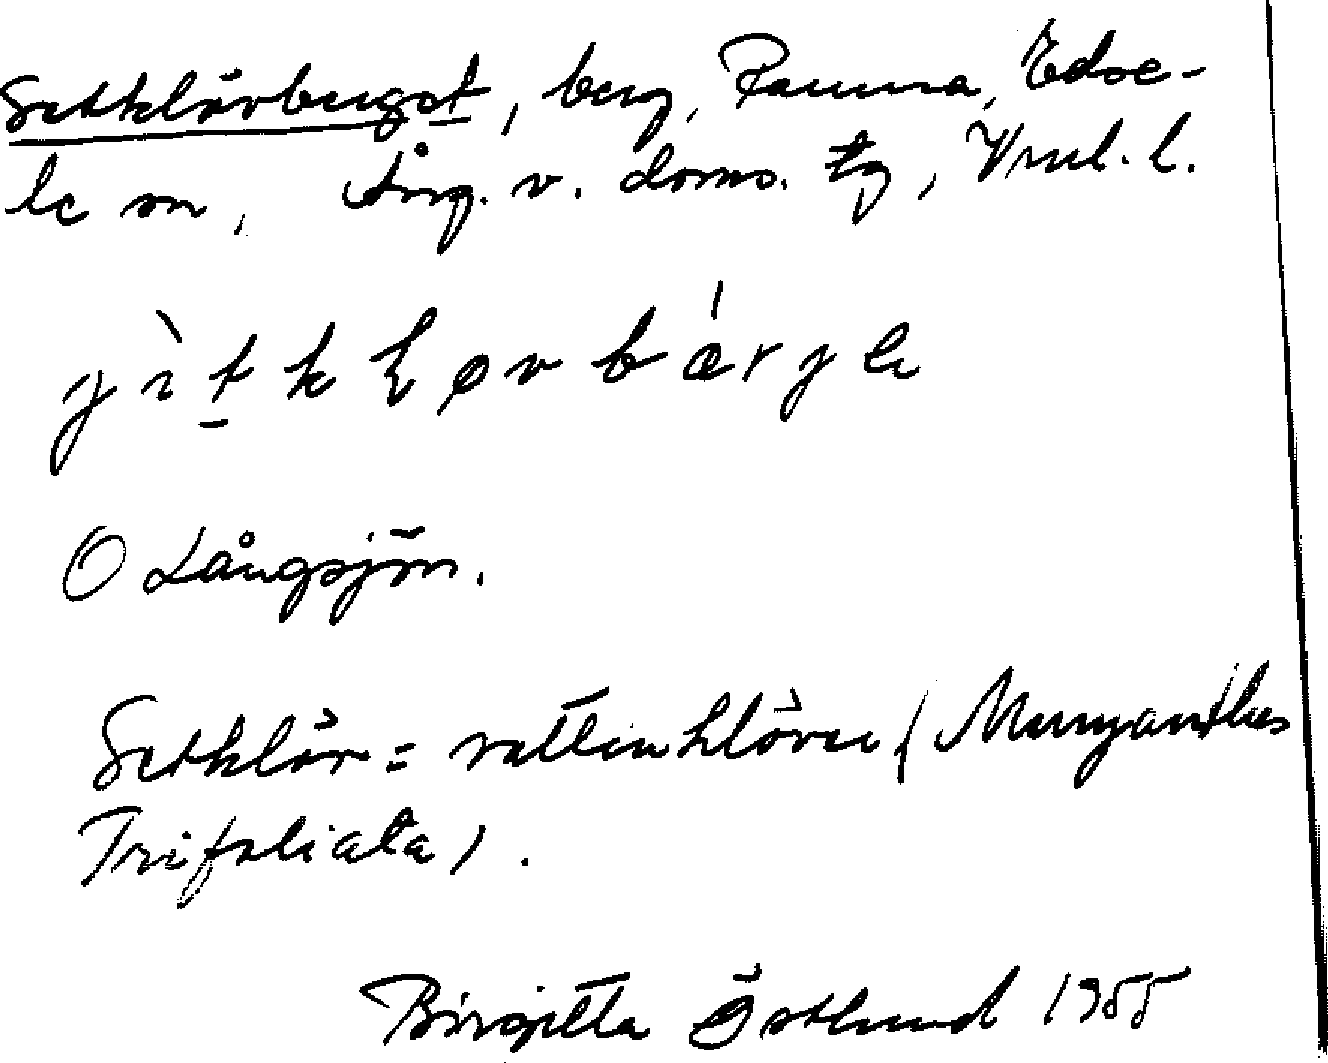 Getklövberget, berg, Ramna, Edse-
le sn, Ång. v. doms. tg, Vnul. l.
O Långsjön.
Getklöv = vattenklöver (Menyanthes
Trifoliata).
Birgitta Östlund 1955